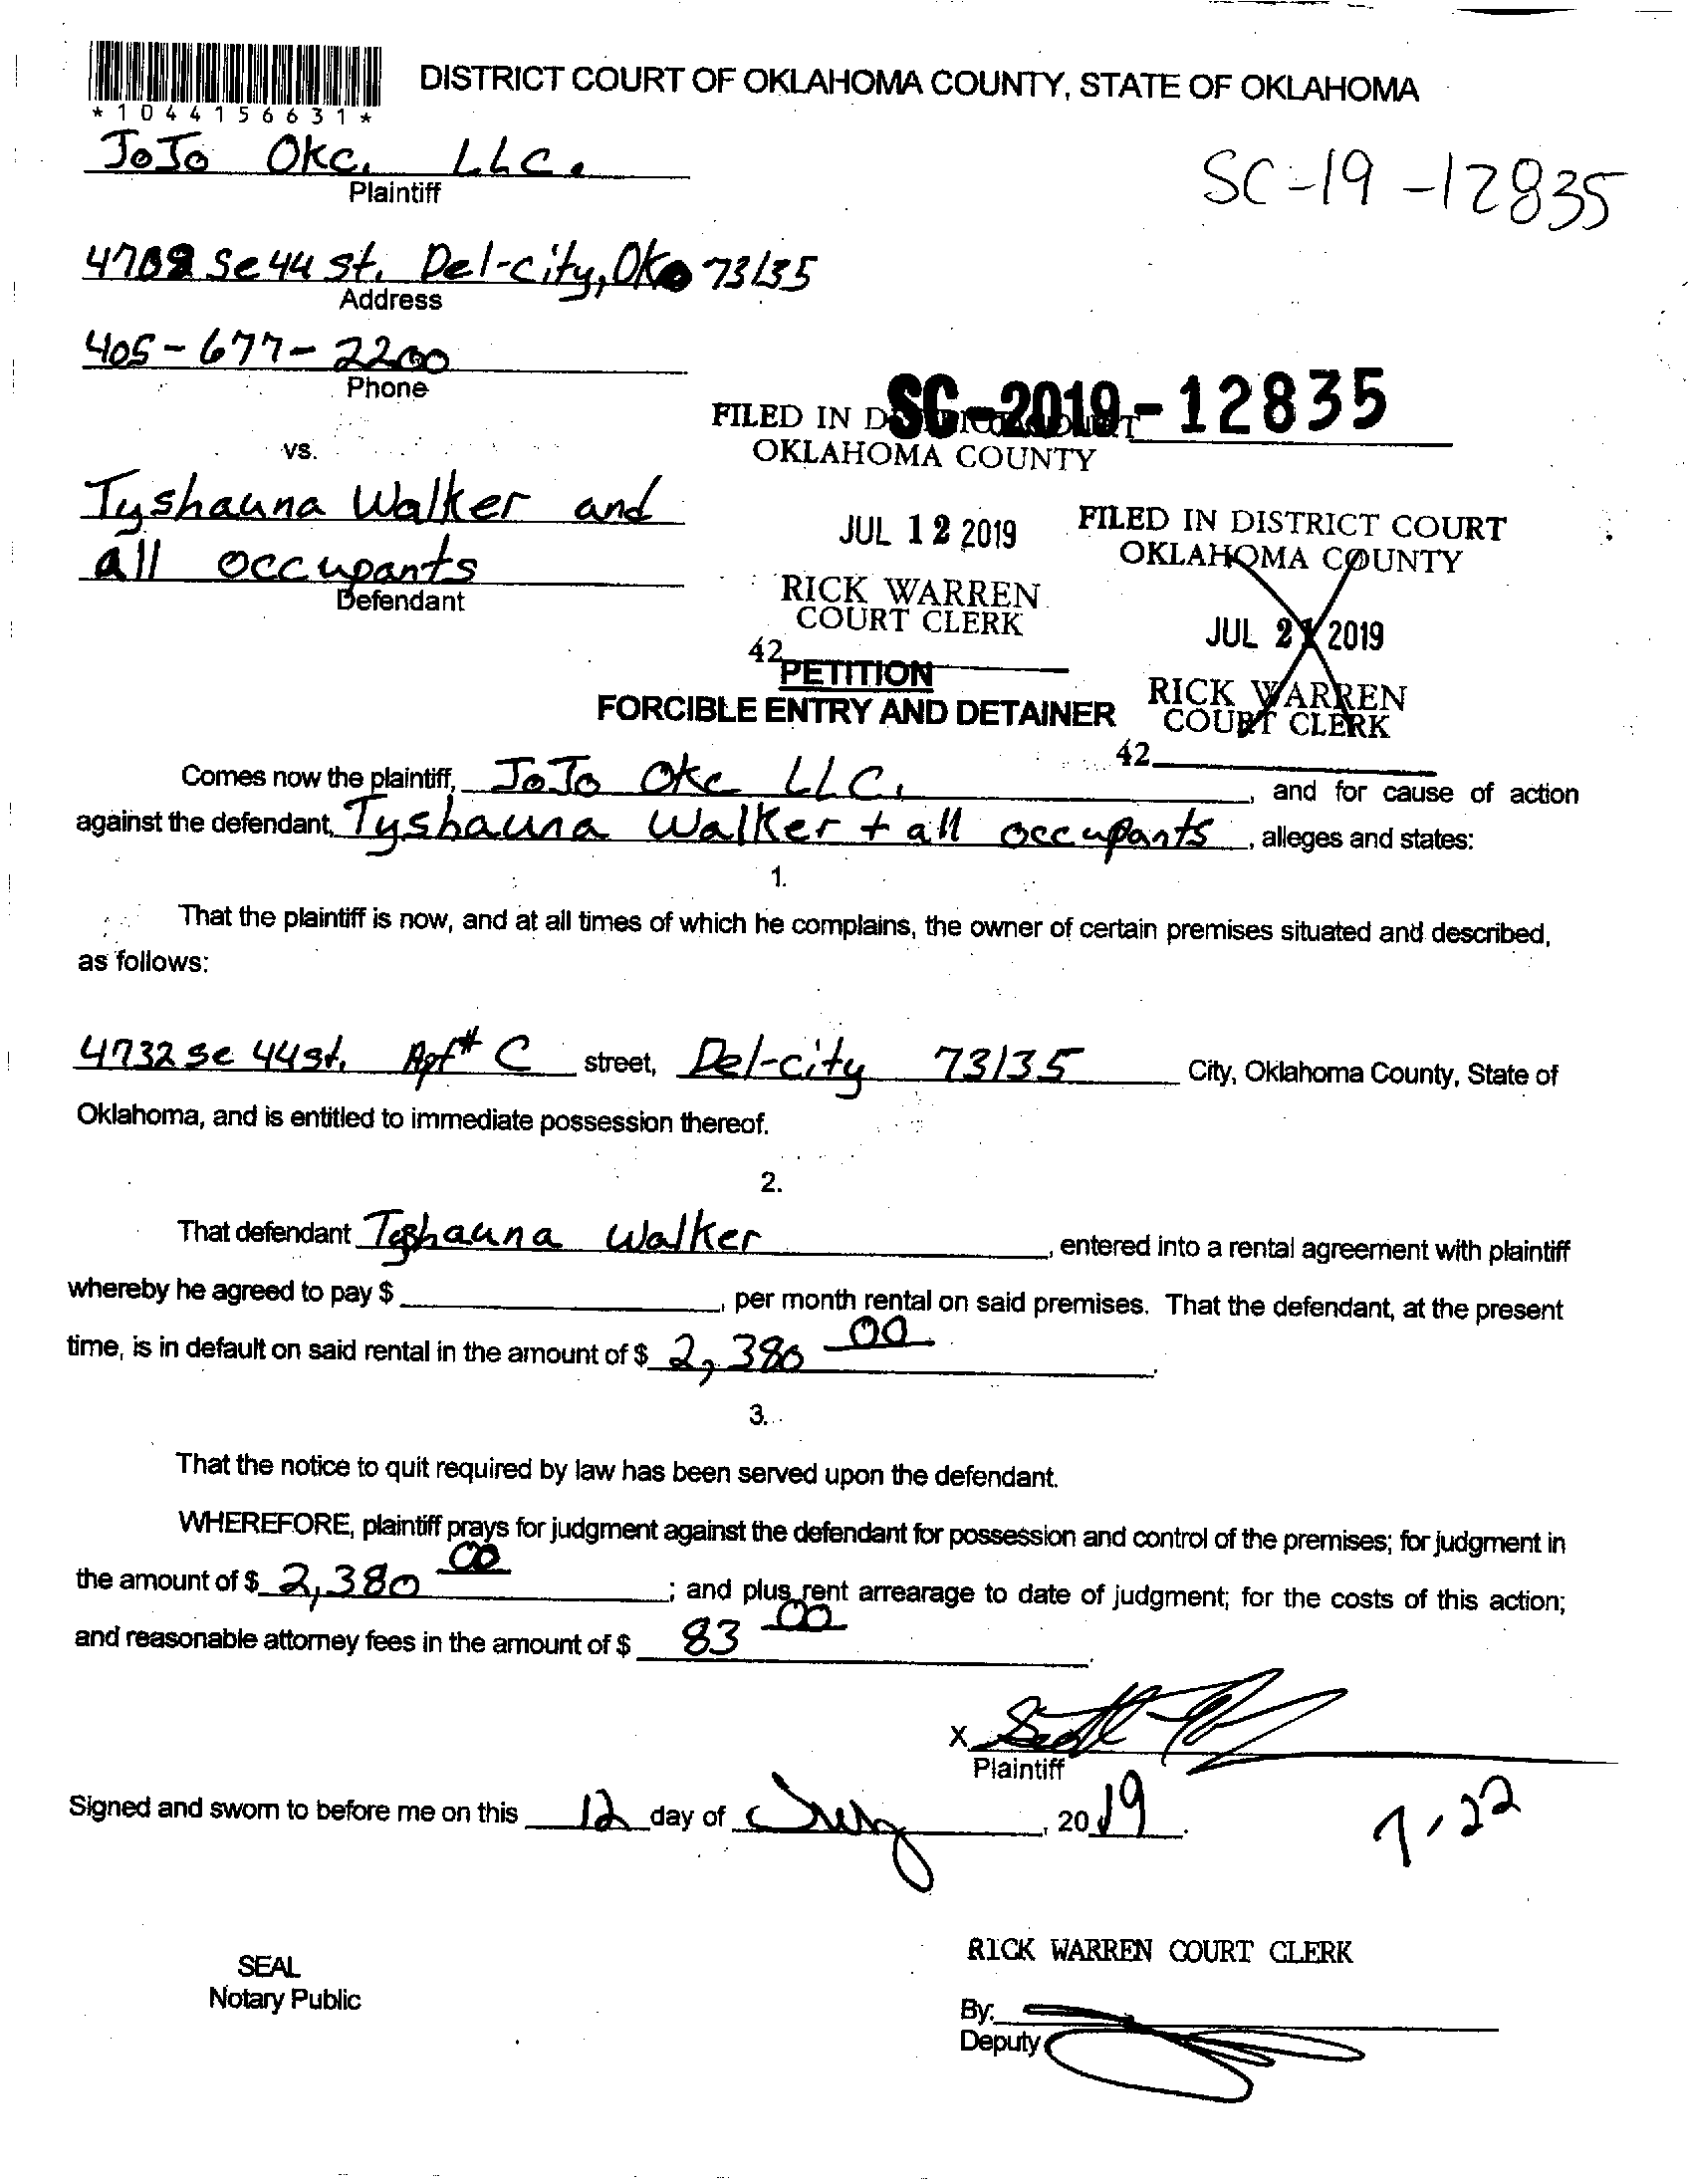 DISTRICT COURT OF OKLAHOMA COUNTY, STATE OF OKLAHOMA
*1044156631*
JoJo OKC, LLC.
Plaintiff
SC-19-12835
Se 44 st. Del-city, OK 73135
Address
405-677-2200
Phone
SC-2019-12835
FILED IN DISTRICT COURT
OKLAHOMA COUNTY
vs.
Tyshauna Walker and
all occupants
Defendant
JUL 12 2019
RICK WARREN
COURT CLERK
42
FILED IN DISTRICT COURT
OKLAHOMA COUNTY
JUL 2 2019
RICK WARREN
COURT CLERK
42
PETITION
FORCIBLE ENTRY AND DETAINER
Comes now the plaintiff, JoJo OKC LLC, , and for cause of action
against the defendant, Tyshauna Walker + all occupants , alleges and states:
1.
That the plaintiff is now, and at all times of which he complains, the owner of certain premises situated and described,
as follows:
4732 se 44 st. Apt# C street, Del-city 73135 City, Oklahoma County, State of
Oklahoma, and is entitled to immediate possession thereof.
2.
That defendant Tyshauna Walker , entered into a rental agreement with plaintiff
whereby he agreed to pay $ , per month rental on said premises. That the defendant, at the present
time, is in default on said rental in the amount of $ 2,380 00 .
3.
That the notice to quit required by law has been served upon the defendant.
WHEREFORE, plaintiff prays for judgment against the defendant for possession and control of the premises; for judgment in
the amount of $ 2,380 00 ; and plus rent arrearage to date of judgment; for the costs of this action;
and reasonable attorney fees in the amount of $ 83 00 .
X
Plaintiff
Signed and sworn to before me on this 12 day of July , 2019.
7-22
SEAL
Notary Public
RICK WARREN COURT CLERK
By:
Deputy